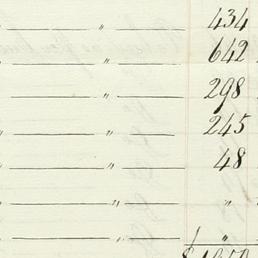 " 434
" 642
" 298
" 245
" 48
" "
" 1 "